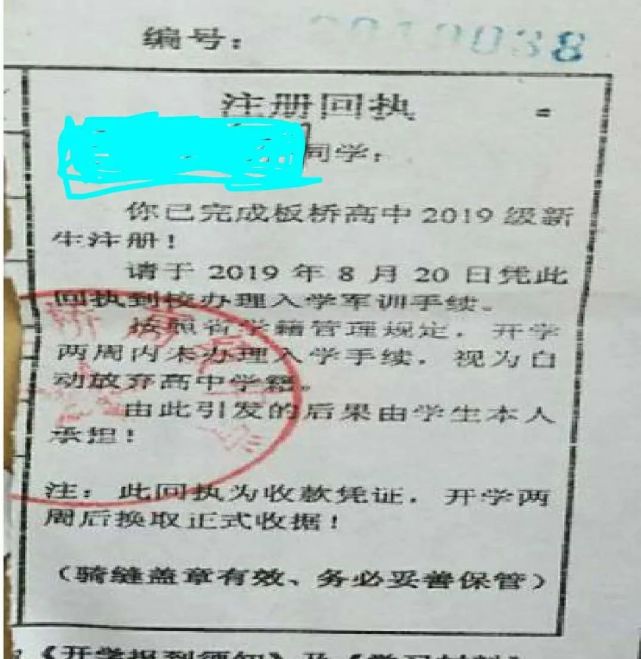 编号： 2019038
注册回执
同学：
你已完成板桥高中 2019 级新
生注册！
请于 2019 年 8 月 20 日凭此
回执到校办理入学军训手续。
按照省学籍管理规定，开学
两周内未办理入学手续，视为自
动放弃高中学籍。
由此引发的后果由学生本人
承担！
注：此回执为收款凭证，开学两
周后换取正式收据！
（骑缝盖章有效、务必妥善保管）
《开学报到须知》及《学习材料》